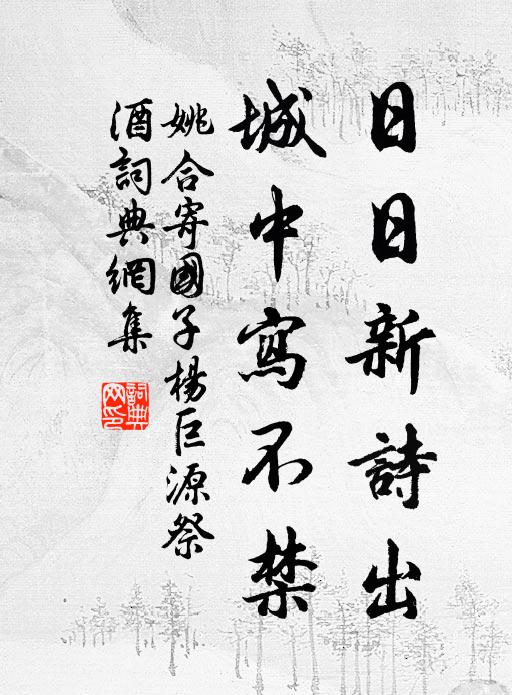 日日新詩出
城中寫不禁
姚合寄國子楊巨源祭
酒詞典網集
詞典網印